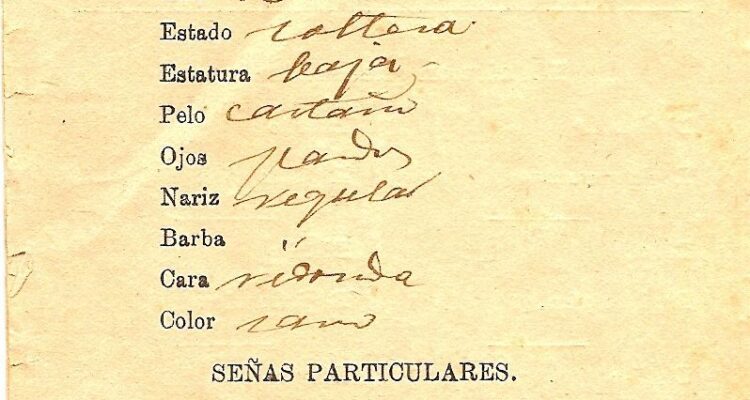 Estado soltera
Estatura baja
Pelo castaño
Ojos pardos
Nariz regular
Barba "
Cara redonda
Color sano
SEÑAS PARTICULARES.